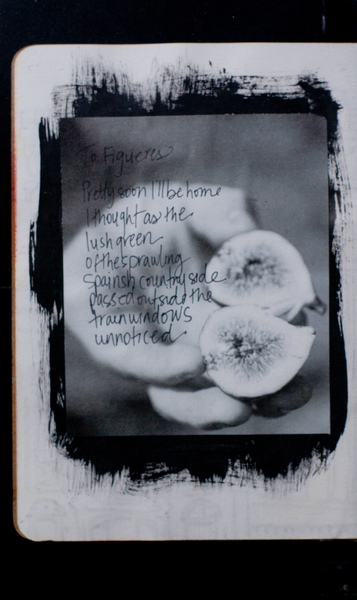 To Figueres
Pretty soon I'll be home
I thought as the
lush green
of the sprawling
Spainsh countryside
passed outside the
train windows
unnoticed.